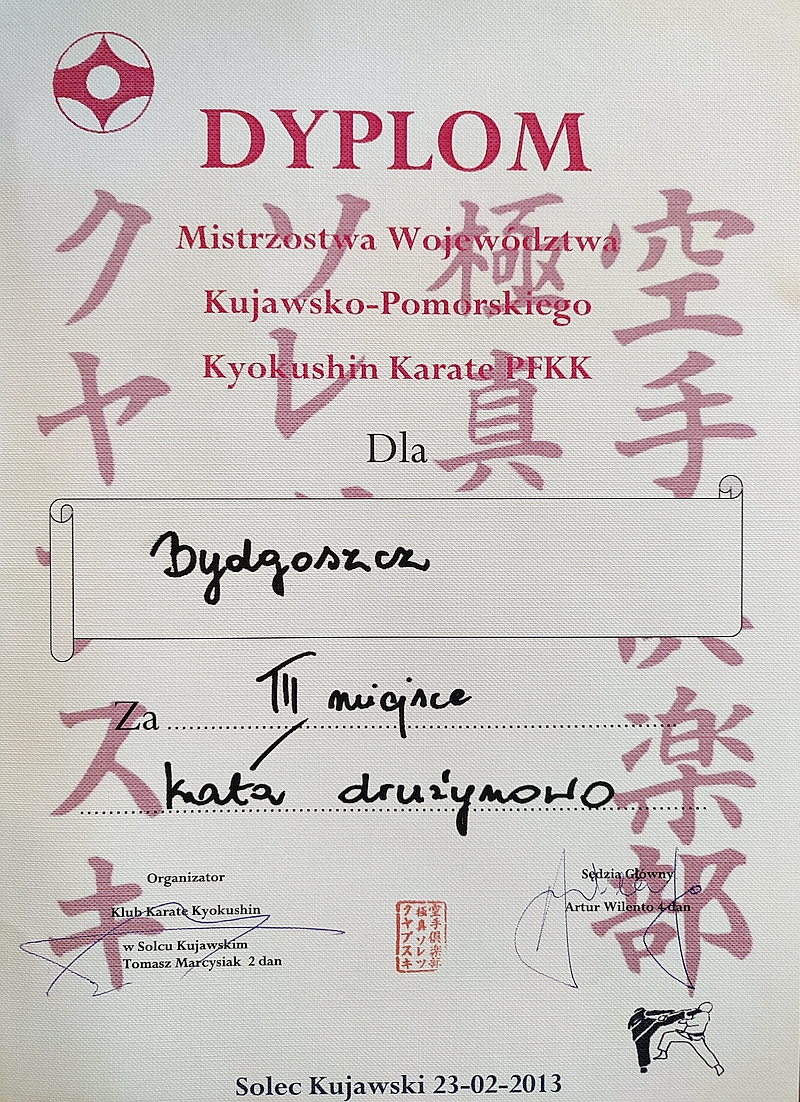 DYPLOM
Mistrzostwa Województwa
Kujawsko-Pomorskiego
Kyokushin Karate PFKK
Dla
Bydgoszcz
Za III miejsce
kata drużynowo
空手倶楽部
極真
ソレ
クヤ
スキ
Organizator
Klub Karate Kyokushin
w Solcu Kujawskim
Tomasz Marcysiak 2 dan
空手倶楽部
極真ソレツ
クヤブスキ
Sędzia Główny
Artur Wilento 4 dan
Solec Kujawski 23-02-2013